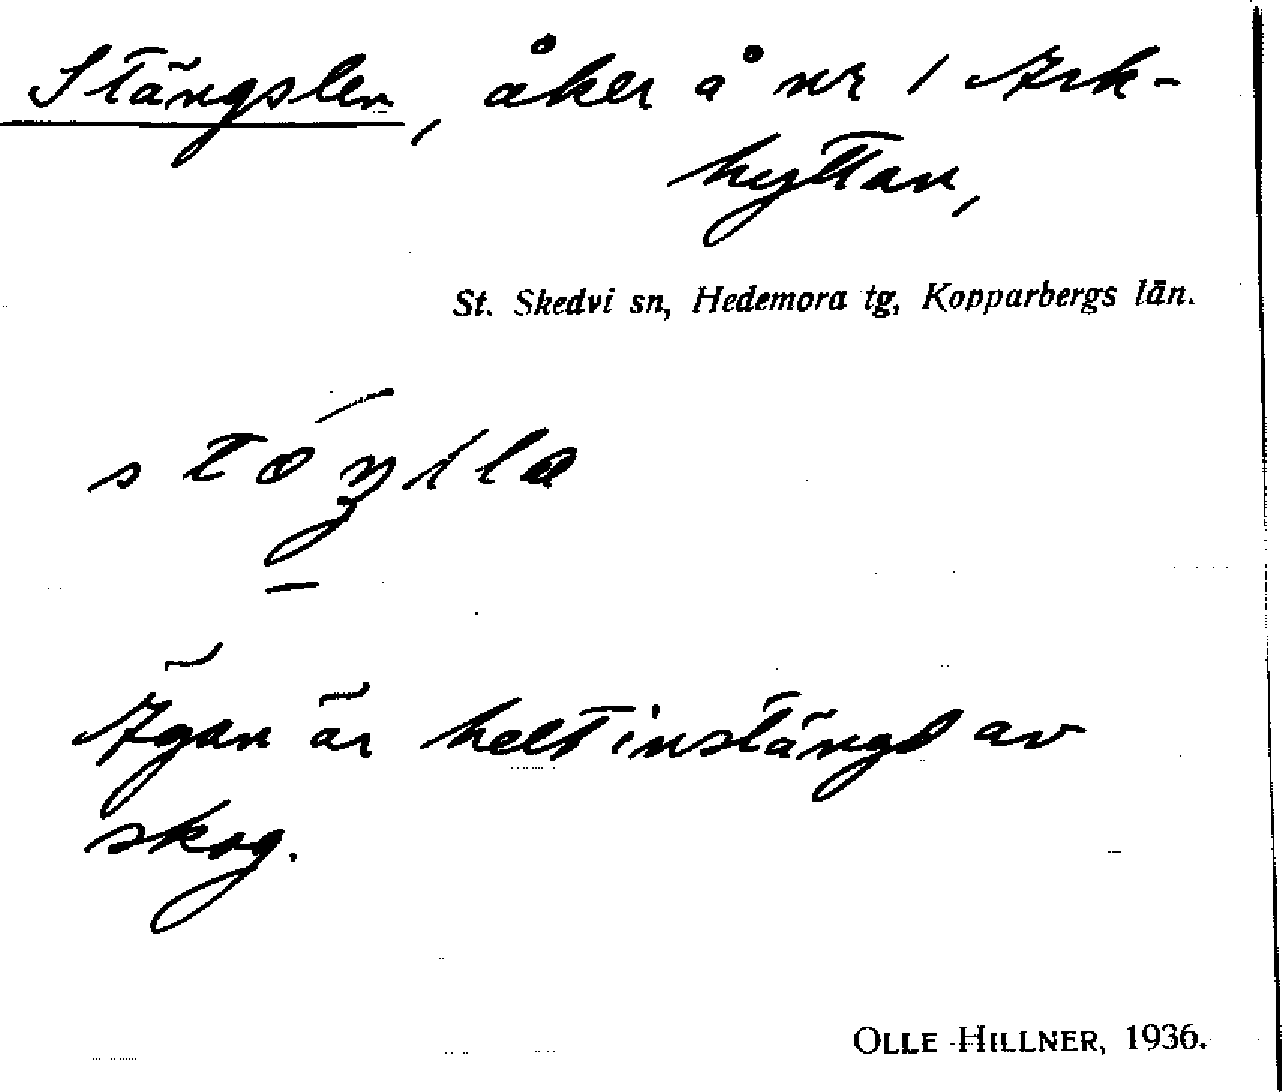 Stängslen, åker å nr 1 Ark-
hyttan,
St. Skedvi sn, Hedemora tg, Kopparbergs län.
Ägan är helt instängd av
skog.
OLLE HILLNER, 1936.